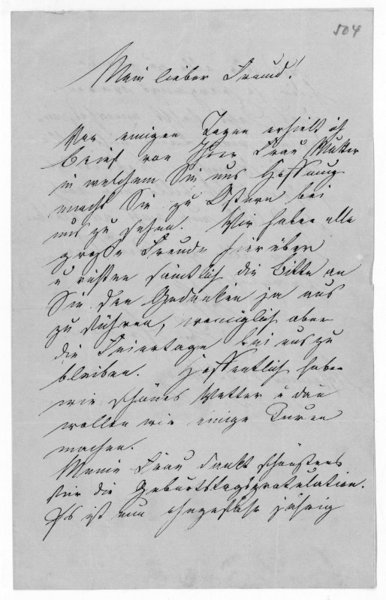 504
Mein lieber Freund!
Vor einigen Tagen erhielt ich
Brief von Ihrer Frau Mutter
in welchem Sie uns Hoffnung
macht Sie zu Ostern bei
uns zu sehen. Wir haben alle
große Freude hierüber
u richten sämtlich die Bitte an
Sie den Gedanken ja aus
zu führen, womöglich aber
die Feiertage bei uns zu
bleiben. Hoffentlich haben
wir schönes Wetter u dan
wollen wir einige Turen
machen.
Meine Frau dankt schönstens
für die Geburtstagsgratulation.
Es ist nun ungefähr jährig